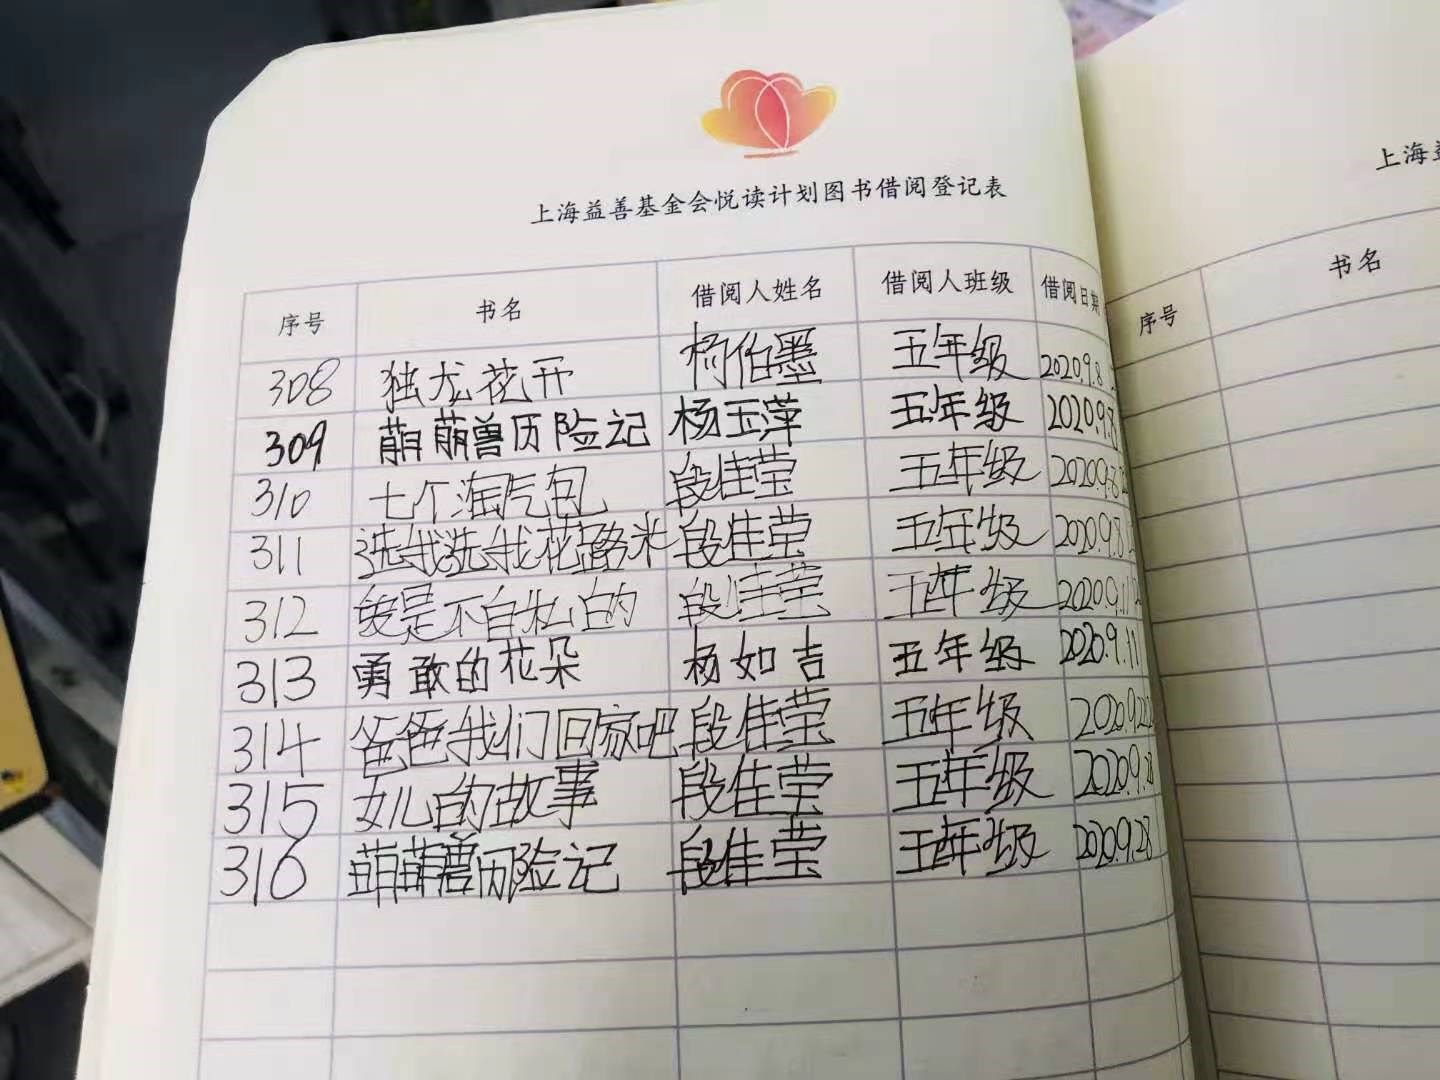 上海益善基金会悦读计划图书借阅登记表
序号 书名 借阅人姓名 借阅人班级 借阅日期
308 独龙花开 杨伯墨 五年级 2020.9.8
309 萌萌兽历险记 杨玉萍 五年级 2020.9.8
310 七个淘气包 段佳莹 五年级 2020.9.8
311 选我选我花路米 段佳莹 五年级 2020.9.8
312 是不自私的 段佳莹 五年级 2020.9.11
313 勇敢的花朵 杨如吉 五年级 2020.9.11
314 爸爸我们回家吧 段佳莹 五年级 2020.9.2
315 女儿的故事 段佳莹 五年级 2020.9.28
316 萌萌兽历险记 段佳莹 五年级 2020.9.28
上海
序号 书名